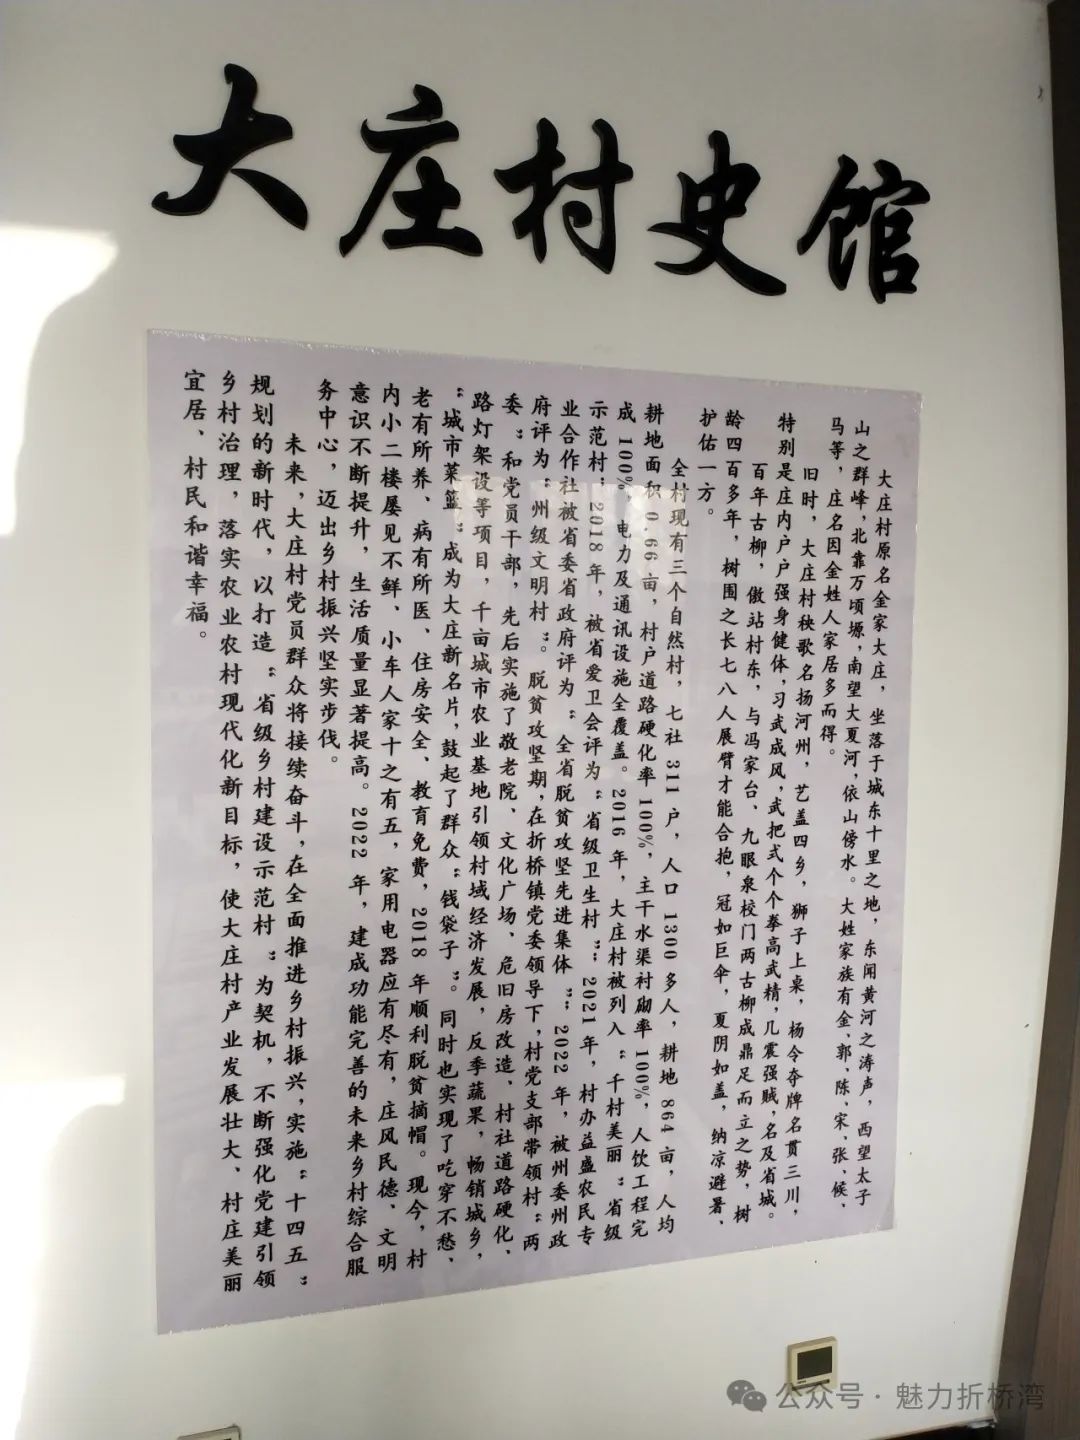 大庄村史馆
大庄村原名金家大庄，坐落于城东十里之地，东闻黄河之涛声，西望太子
山之群峰，北靠万顷塬，南望大夏河，依山傍水。大姓家族有金、郭、陈、宋、张、候、
马等，庄名因金姓人家居多而得。
旧时，大庄村秧歌名扬河州，艺盖四乡，狮子上桌，杨令夺牌名贯三川，
特别是庄内户户强身健体，习武成风，武把式个个拳高武精，几震强贼，名及省城。
百年古柳，傲站村东，与冯家台、九眼泉校门两古柳成鼎足而立之势，树
龄四百多年，树围之长七八人展臂才能合抱，冠如巨伞，夏阴如盖，纳凉避暑、
护佑一方。
全村现有三个自然村，七社 311 户，人口 1300 多人，耕地 864 亩，人均
耕地面积 0.66 亩，村户道路硬化率 100%，主干水渠衬砌率 100%，人饮工程完
成 100%，电力及通讯设施全覆盖。2016 年，大庄村被列入“千村美丽“省级
示范村”，2018 年，被省爱卫会评为“省级卫生村”“2021年，村办益盛农民专
业合作社被省委省政府评为“全省脱贫攻坚先进集体”“2022 年，被州委州政
府评为“州级文明村”。脱贫攻坚期，在折桥镇党委领导下，村党支部带领村“两
委“和党员干部，先后实施了敬老院、文化广场、危旧房改造、村社道路硬化、
路灯架设等项目，千亩城市农业基地引领村域经济发展，反季蔬果，畅销城乡，
“城市菜篮“成为大庄新名片，鼓起了群众“钱袋子”。同时也实现了吃穿不愁、
老有所养、病有所医、住房安全、教育免费，2018 年顺利脱贫摘帽。现今，村
内小二楼屡见不鲜、小车人家十之有五，家用电器应有尽有，庄风民德、文明
意识不断提升，生活质量显著提高。2022 年，建成功能完善的未来乡村综合服
务中心，迈出乡村振兴坚实步伐。
未来，大庄村党员群众将接续奋斗，在全面推进乡村振兴，实施“十四五“
规划的新时代，以打造“省级乡村建设示范村“为契机，不断强化党建引领
乡村治理，落实农业农村现代化新目标，使大庄村产业发展壮大、村庄美丽
宜居、村民和谐幸福。
公众号·魅力折桥湾